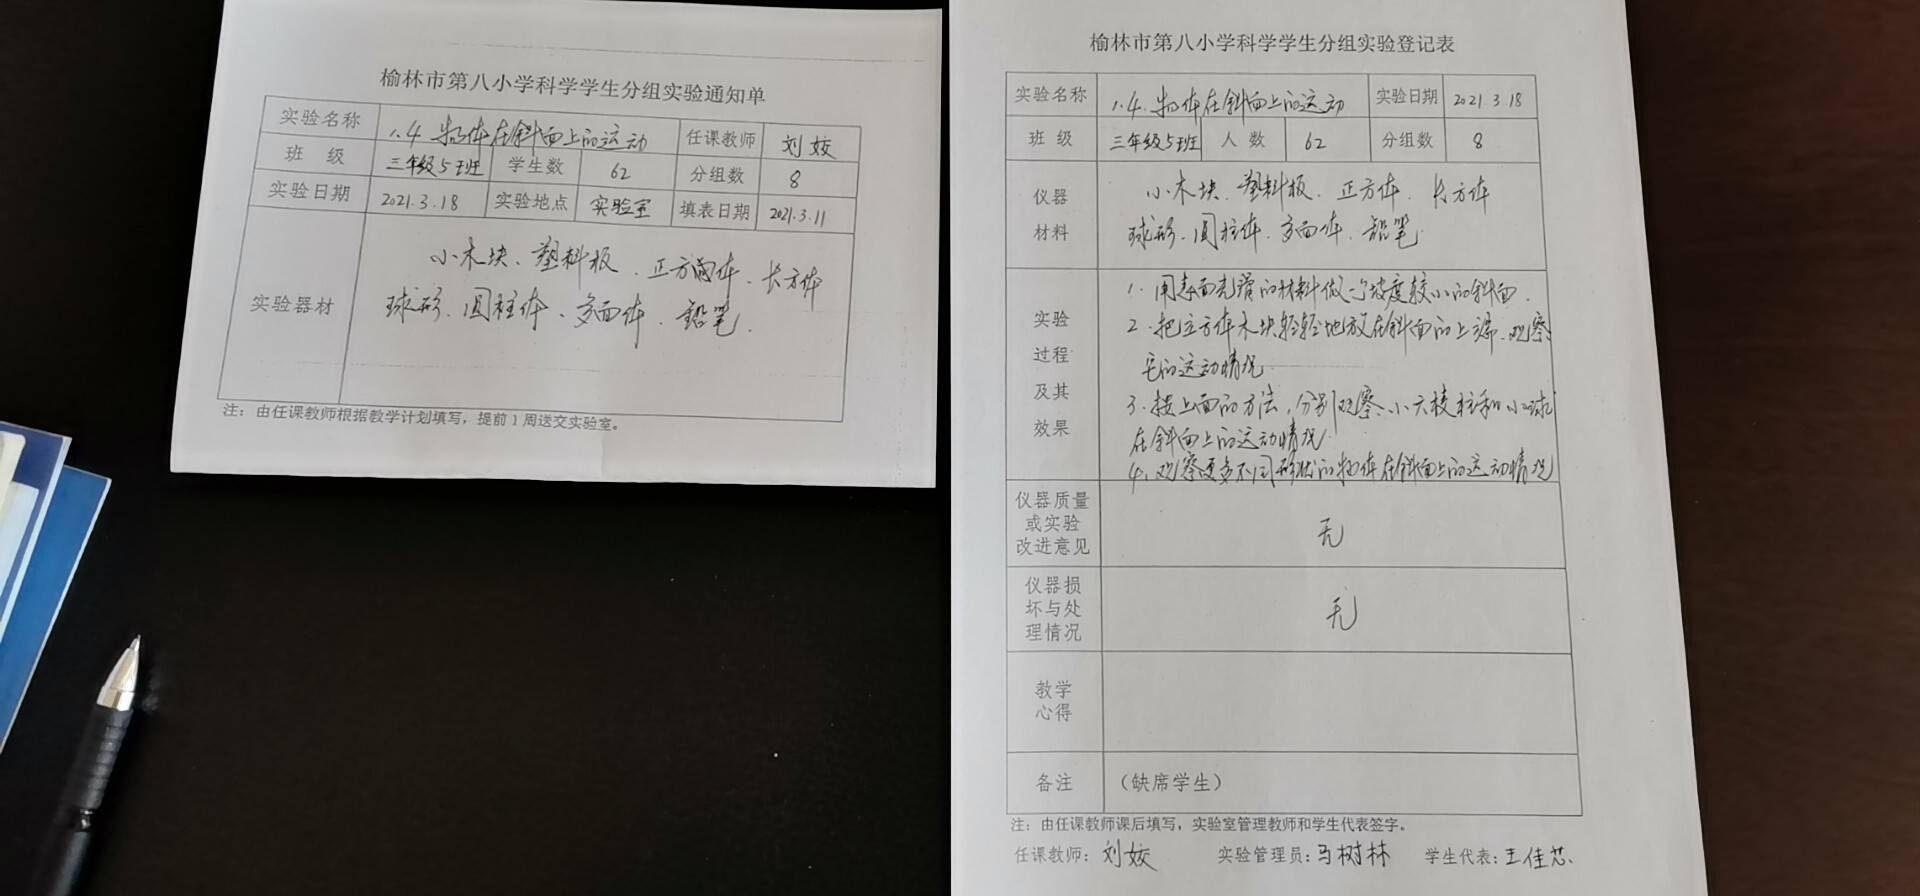 榆林市第八小学科学学生分组实验通知单
实验名称 1.4.物体在斜面上的运动 任课教师 刘姣
班 级 三年级5班 学生数 62 分组数 8
实验日期 2021.3.18 实验地点 实验室 填表日期 2021.3.11
实验器材
小木块、塑料板、正方体、长方体
球形、圆柱体、多面体、铅笔.
注：由任课教师根据教学计划填写，提前1周送交实验室。
榆林市第八小学科学学生分组实验登记表
实验名称 1.4.物体在斜面上的运动 实验日期 2021.3.18
班 级 三年级5班 人 数 62 分组数 8
仪器
材料
小木块、塑料板、正方体、长方体
球形、圆柱体、多面体、铅笔.
实验
过程
及其
效果
1.用表面光滑的材料做一个坡度较小的斜面.
2.把立方体木块轻轻地放在斜面的上端、观察
它的运动情况.
3.按上面的方法，分别观察、小六棱柱和小球
在斜面上的运动情况.
4、观察更多不同形状的物体在斜面上的运动情况
仪器质量
或实验
改进意见
无
仪器损
坏与处
理情况
无
教学
心得
备注 （缺席学生）
注：由任课教师课后填写，实验室管理教师和学生代表签字。
任课教师：刘姣 实验管理员：马树林 学生代表：王佳芯、